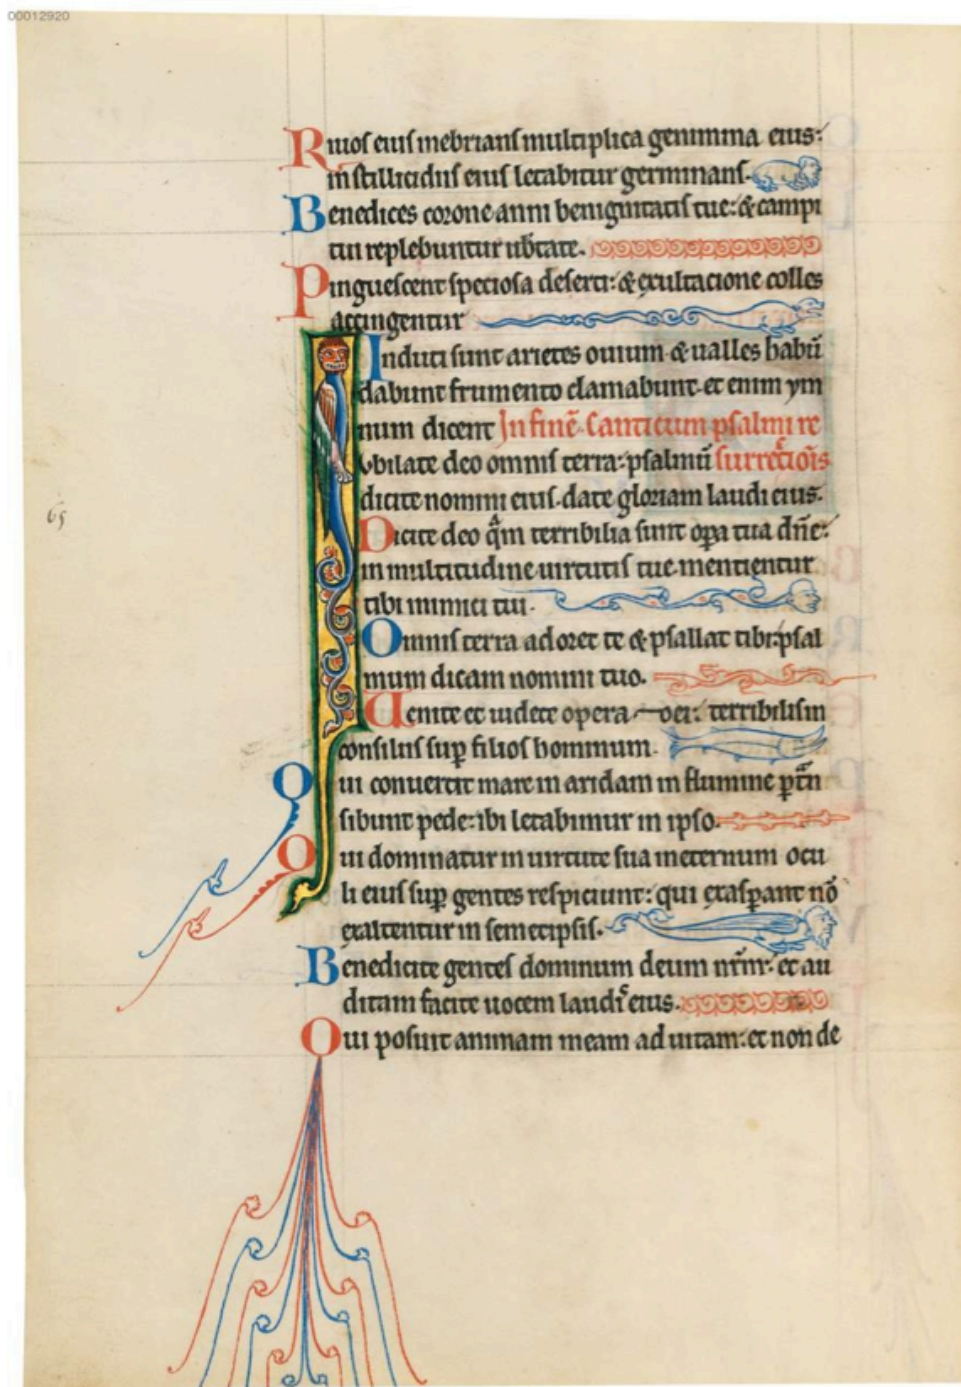 00012920
Riuos eius inebrians multiplica genimina eius:
in stillicidiis eius letabitur germinans.
Benedices corone anni benignitatis tue: & campi
tui replebuntur ub̄tate.
Pinguescent speciosa deserti: & exultacione colles
accingentur
Induti sunt arietes ouium & ualles habū
dabunt frumento clamabunt et enim ym
num dicent In finē Canticum psalmi re
Iubilate deo omnis terra: psalmū surrectiōis
dicite nomini eius. date gloriam laudi eius.
Dicite deo qām terribilia sunt opa tua dn̄e:
in multitudine uirtutis tue mentientur
tibi inimici tui.
Omnis terra adoret te & psallat tibi: psal
mum dicam nomini tuo.
Uenite et uidete opera dei: terribilis in
consiliis sup filios hominum.
65
Qui conuertit mare in aridam in flumine ptān
sibunt pede: ibi letabimur in ipso.
Qui dominatur in uirtute sua in eternum ocu
li eius sup gentes respiciunt: qui exaspant nō
exaltentur in semetipsis.
Benedicite gentes dominum deum nr̄m: et au
ditam facite uocem laudis eius.
Qui posuit animam meam ad uitam: et non de